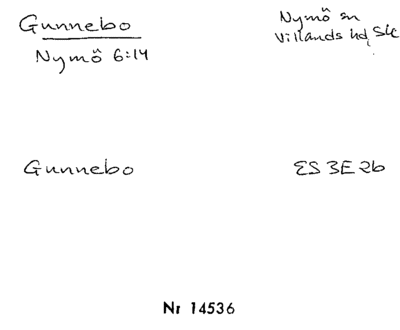 Gunnebo
Nymö 6:14
Nymö sn
Villands hd, Sk
Gunnebo
ES 3E 2b
Nr 14536